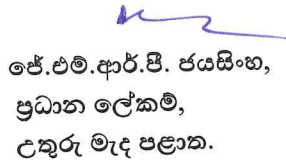 ජේ.එම්.ආර්.පී. ජයසිංහ,
ප්‍රධාන ලේකම්,
උතුරු මැද පළාත.